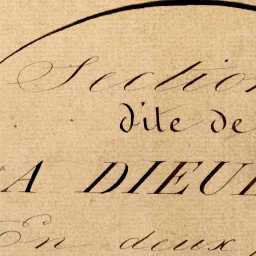 Section
dite de
A DIEUL
En deux